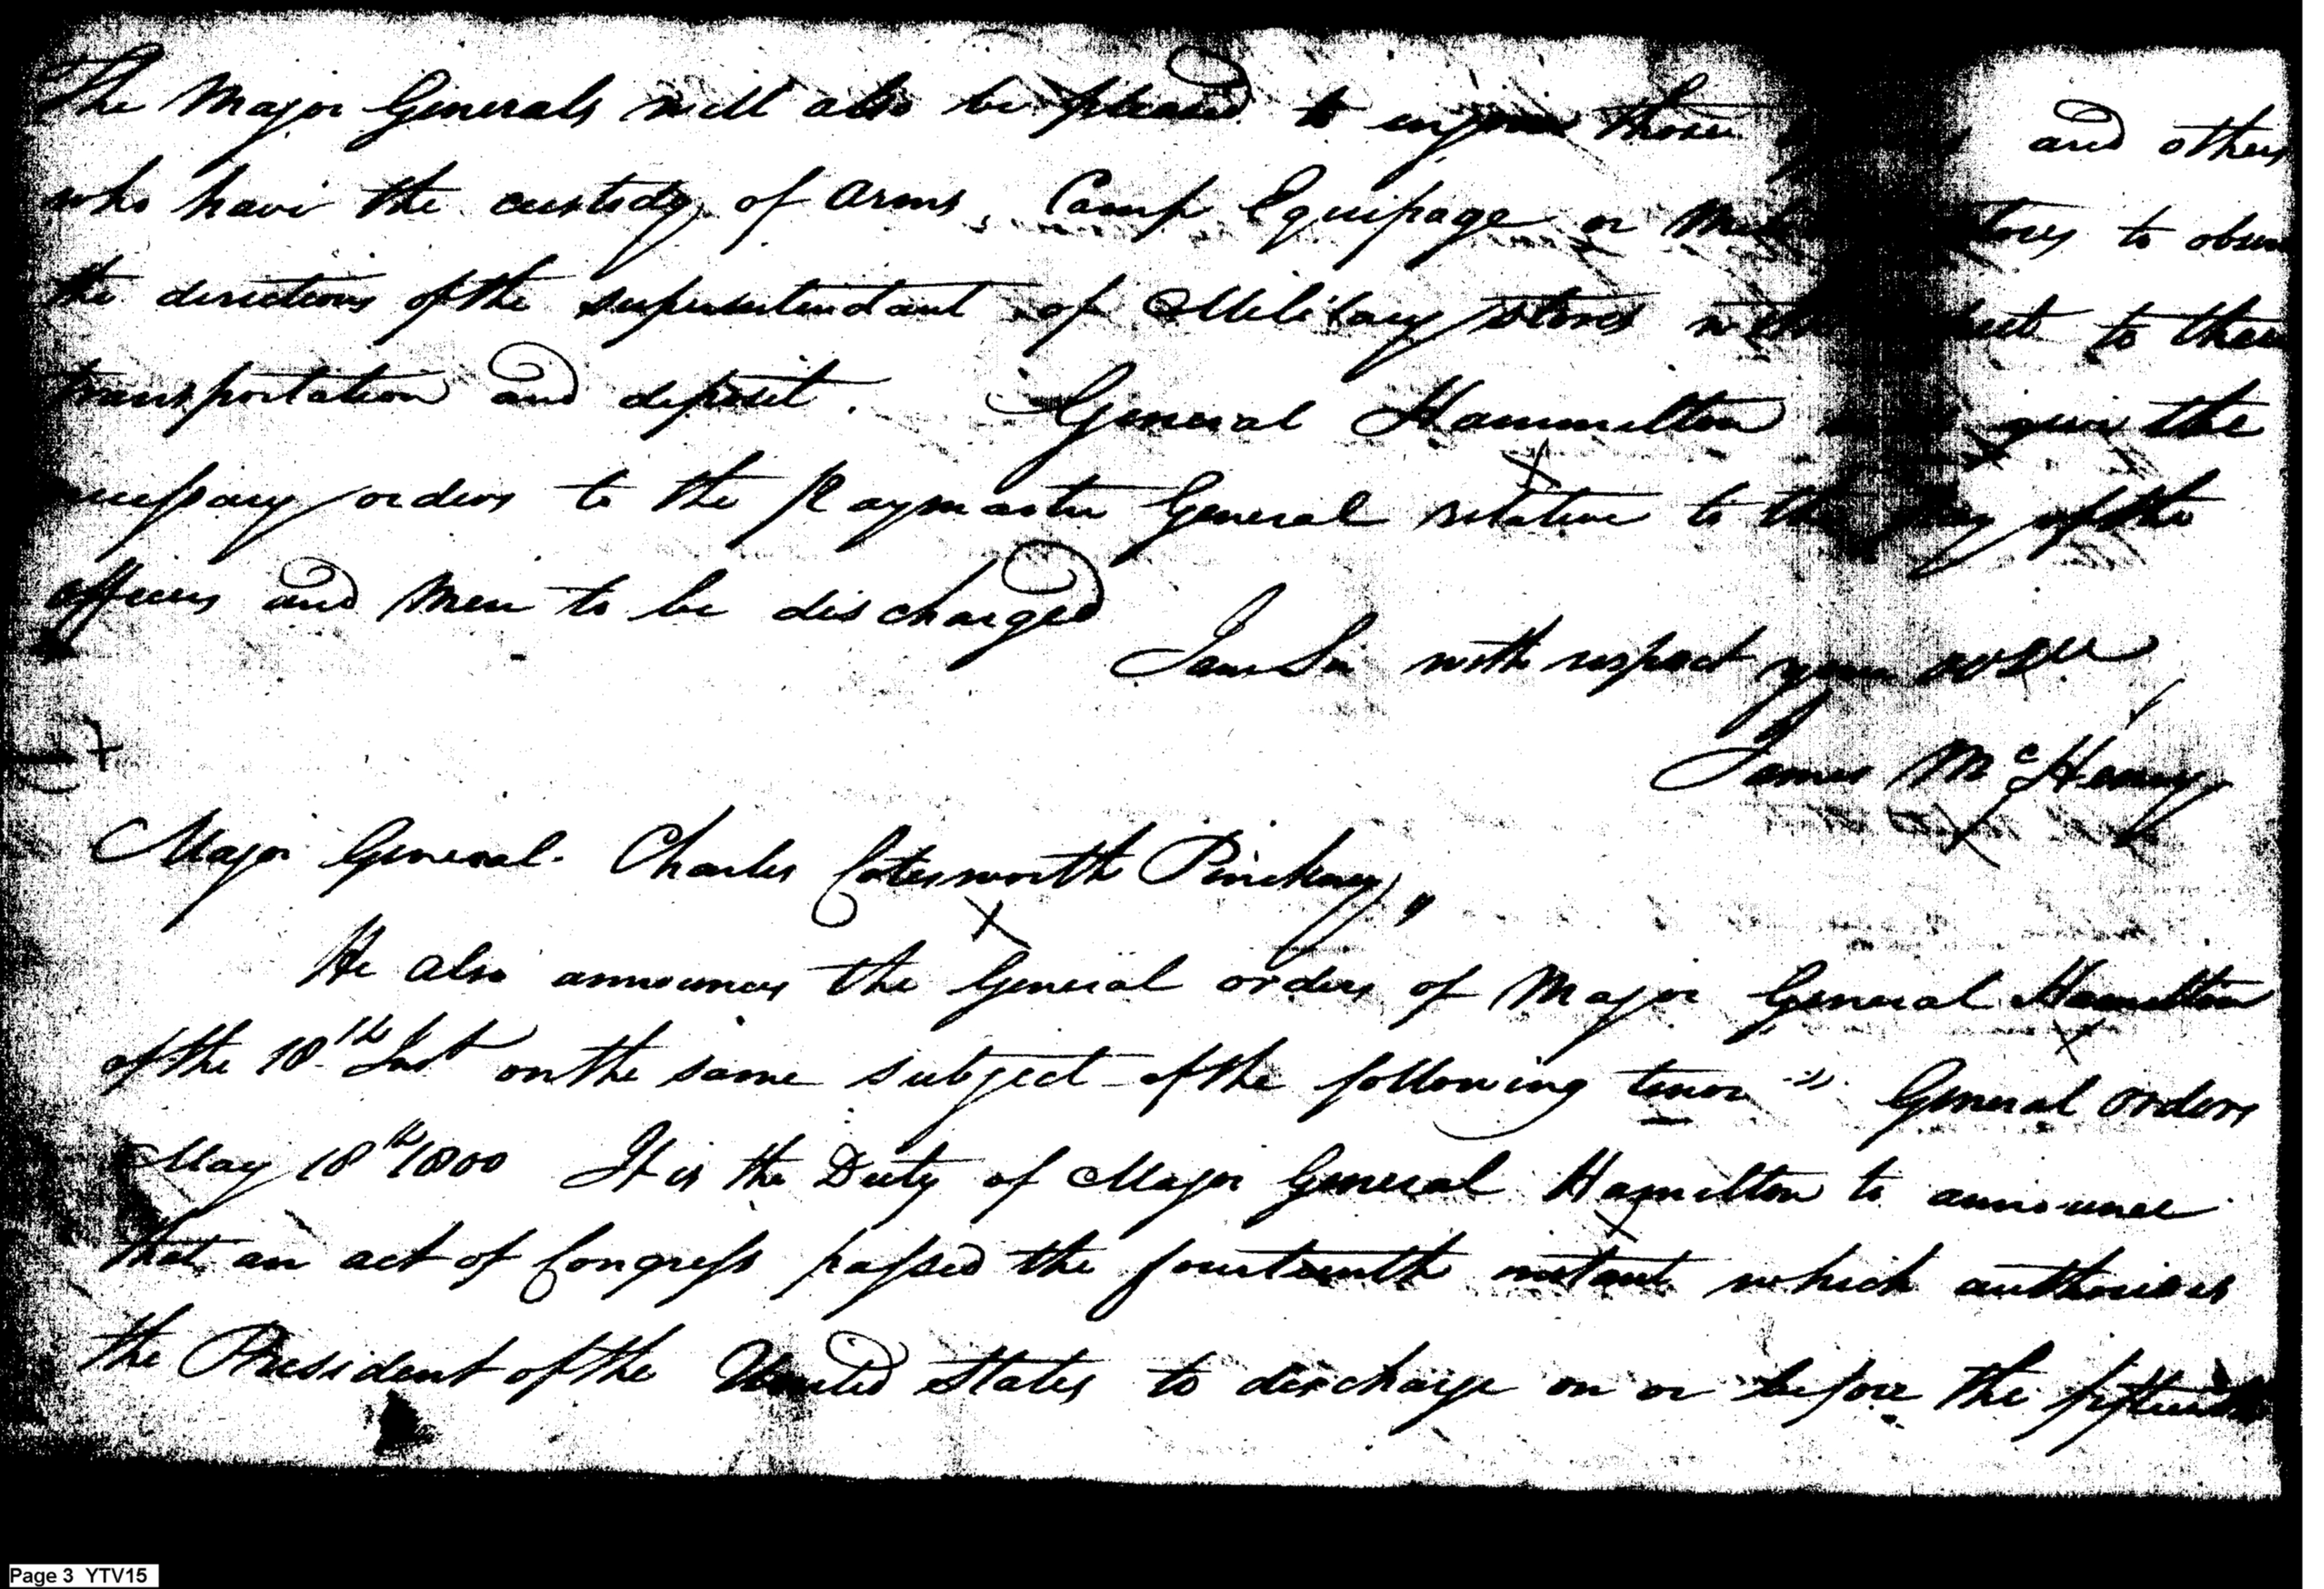 The Major Generals will also be pleased to enjoin those and others
who have the custody of Arms, Camp Equipage or to
the directions of the superintendant of Military stores with to their
transportation and deposit. General Hammilton give the
necessary orders to the Paymaster General relative to the pay of the
officers and Men to be discharged
I am Sir with respect your
James McHenry
Major General. Charles Cotesworth Pinckney,"
He also announces the General orders of Major General Hamilton
of the 18th Inst on the same subject of the following tenor " General orders
May 18th 1800 It is the Duty of Major General Hamilton to announce
that an act of Congress passed the fourteenth instant which authorises
the President of the United States to discharge on or before the fifteenth
Page 3 YTV15